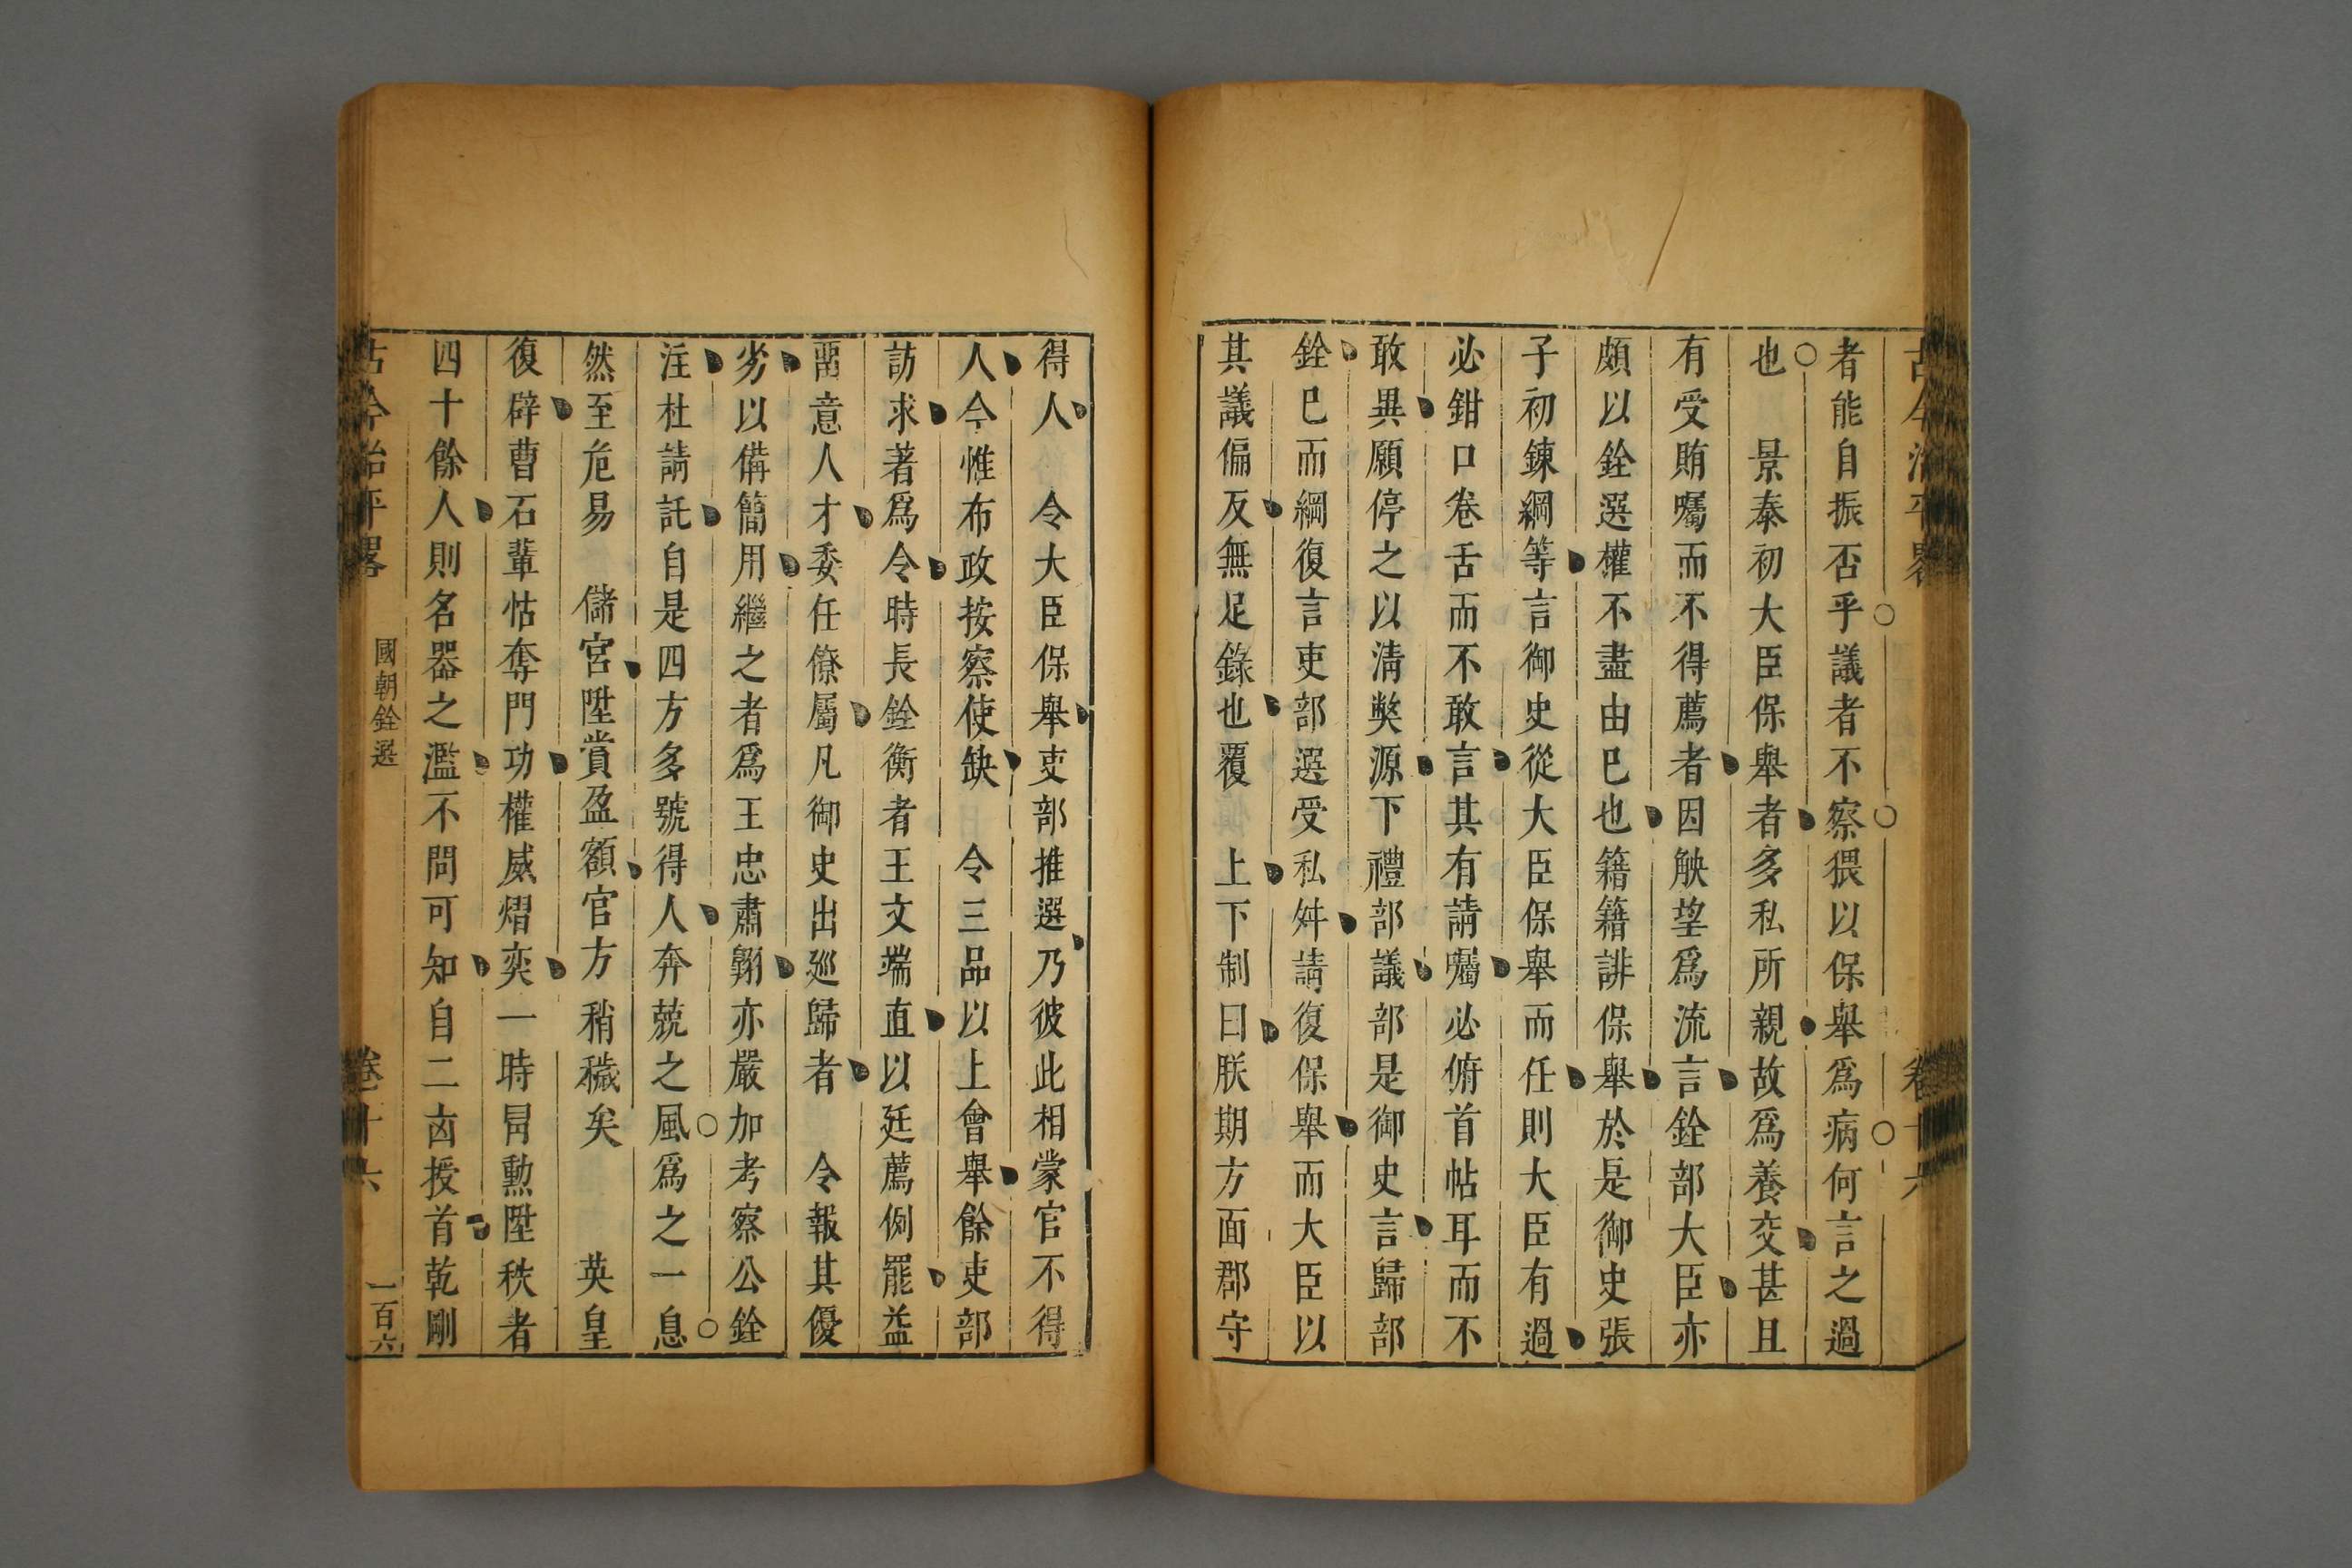 古今治平畧 卷十六
者能自振否乎議者不察猥以保舉爲病何言之過
也 景泰初大臣保舉者多私所親故爲養交甚且
有受賄囑而不得薦者因觖望爲流言銓部大臣亦
頗以銓選權不盡由巳也籍籍誹保舉於是御史張
子初錬綱等言御史從大臣保舉而任則大臣有過
必鉗口卷舌而不敢言其有請囑必俯首帖耳而不
敢異願停之以淸獘源下禮部議部是御史言歸部
銓巳而綱復言吏部選受私舛請復保舉而大臣以
其議偏反無足錄也覆 上下制曰朕期方面郡守
得人 令大臣保舉吏部推選乃彼此相蒙官不得
人今惟布政按察使缺 令三品以上會舉餘吏部
訪求著爲令時長銓衡者王文端直以廷薦例罷益
畱意人才委任僚屬凡御史出廵歸者 令報其優
劣以備簡用繼之者爲王忠肅翺亦嚴加考察公銓
注杜請託自是四方多號得人奔兢之風爲之一息
然至危易 儲宮陞賞盈額官方稍穢矣 英皇
復辟曹石輩怙奪門功權威熠奕一時冐勲陞秩者
四十餘人則名器之濫不問可知自二凶授首乾剛
古今治平畧 國朝銓選 卷十六 一百六